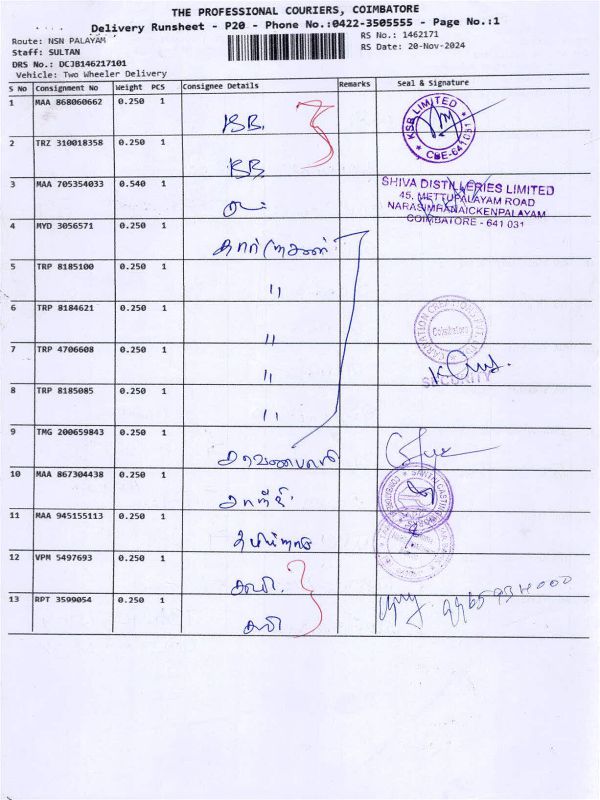 THE PROFESSIONAL COURIERS, COIMBATORE
Delivery Runsheet - P20 - Phone No.:0422-3505555 - Page No.:1
Route: NSN PALAYAM
RS No.: 1462171
Staff: SULTAN
RS Date: 20-Nov-2024
DRS No.: DCJB146217101
Vehicle: Two Wheeler Delivery
S No Consignment No Weight PCS Consignee Details Remarks Seal & Signature
1 MAA 868060662 0.250 1
KSB LIMITED
* CBE-641031 *
2 TRZ 310018358 0.250 1
3 MAA 705354033 0.540 1
SHIVA DISTILLERIES LIMITED
45, METTUPALAYAM ROAD
NARASIMRANAICKENPALAYAM
COIMBATORE - 641 031
4 MYD 3056571 0.250 1
5 TRP 8185100 0.250 1 "
6 TRP 8184621 0.250 1 "
CARNATION CREATIONS PVT. LTD.
Coimbatore
7 TRP 4706608 0.250 1 "
SECURITY
8 TRP 8185085 0.250 1 "
9 TMG 200659843 0.250 1
10 MAA 867304438 0.250 1
11 MAA 945155113 0.250 1
12 VPM 5497693 0.250 1 கவி.
13 RPT 3599054 0.250 1 கவி